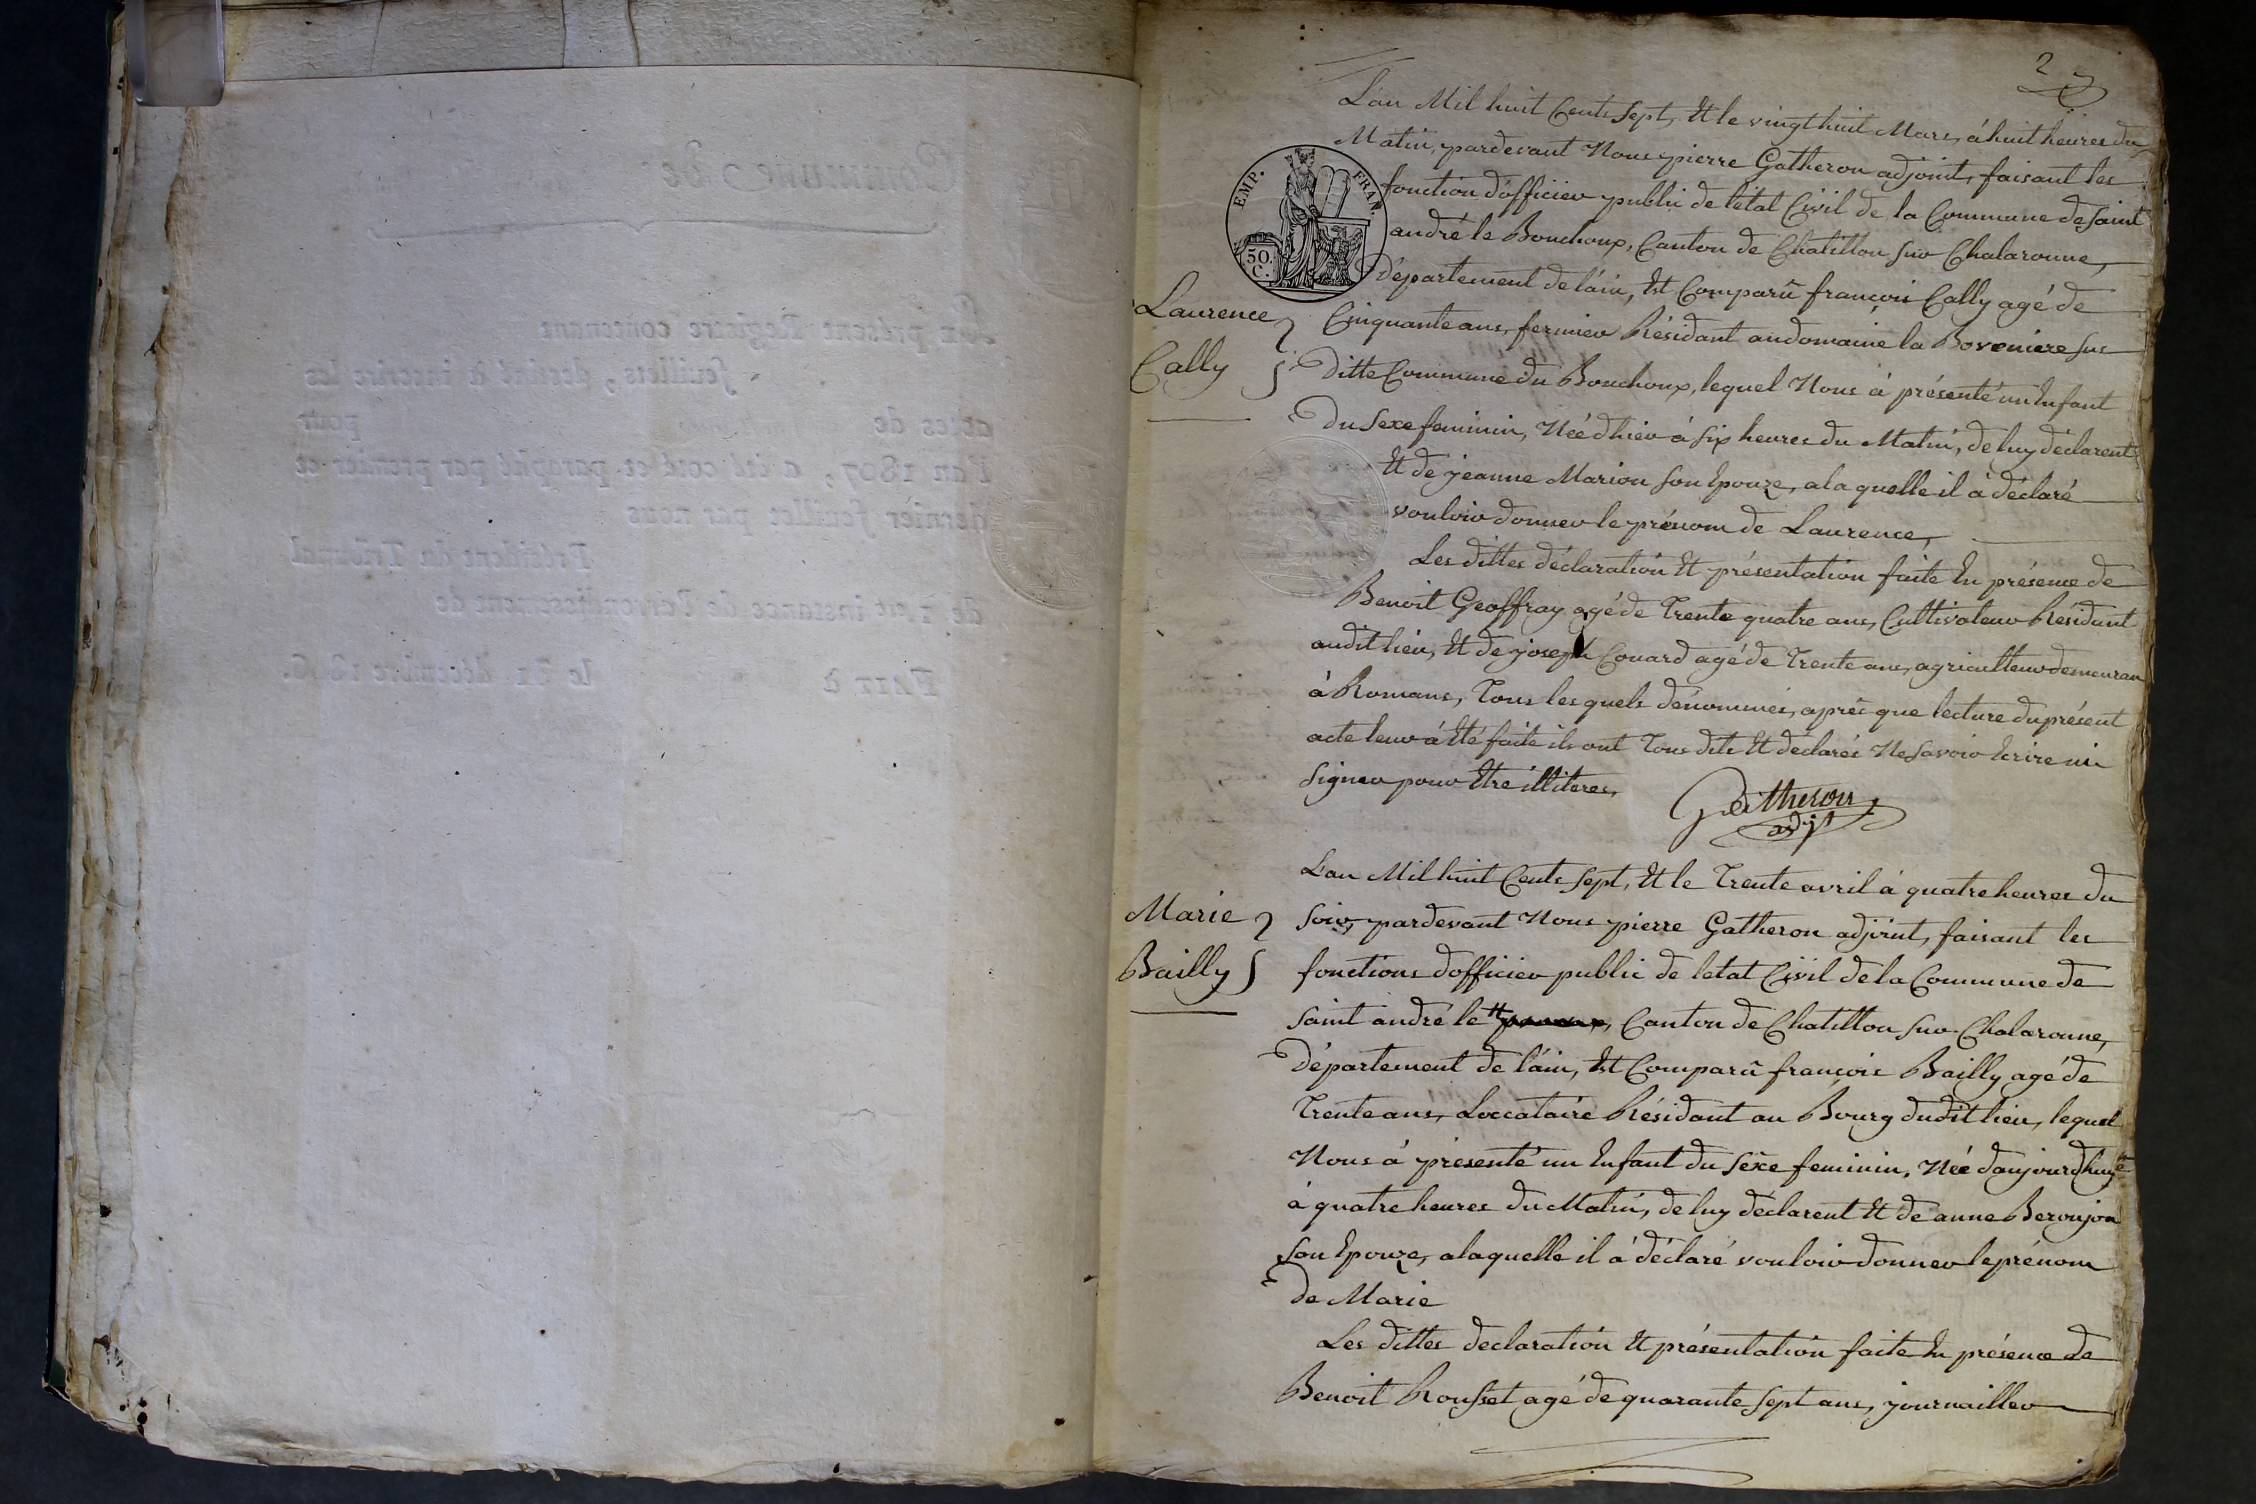 Commune de
Le présent Registre contenant
feuillets, destiné à inscrire les
actes de pour
l'an 1807, a été coté et paraphé par premier et
dernier feuillet par nous
Président du Tribunal
de 1.ere instance de l'arrondissement de
FAIT à le 31 décembre 1806.
2
L'an Mil huit Cents Sept, Et le vingt huit Mars, á huit heures du
Matin, pardevant Nous pierre Gatheron adjoint, faisant les
EMP. FRAN.
50.
C.
fonction d'officier public de l'état Civil de la Commune de Saint
andré le Bouchoux, Canton de Chatillon Sur Chalaronne,
Département de l'áin, Est Comparû françois Cally agé de
Laurence
Cally
Cinquante ans, fermier Résidant au domaine la Boveniere Sus
ditte Commune du Bouchoux, lequel Nous á présenté un Enfant
Du Sexe feminin, Née d'hier á Six heures du Matin, de luy déclarent
Et de jeanne Marion Son Epouze, a la quelle il á déclaré
vouloir donner le prénom de Laurence,
Les dittes déclaration Et présentation faite En présence de
Benoit Geoffray agé de Trente quatre ans, Cultivateur Résidant
au dit lieu, Et de joseph Couard agé de Trente ans, agriculteur demeuran
á Romans, Tous les quels dénommés, aprés que lecture du présent
acte leur á Eté faite ils ont Tous dits Et declarés Ne Savoir Ecrire ni
Signer pour Etre illiteres,
Gatheron
adjt
L'an Mil huit Cents Sept, Et le Trente avril á quatre heures du
Marie
Bailly
Soir, pardevant Nous pierre Gatheron adjoint, faisant les
fonctions d'officier public de l'etat Civil de la Commune de
Saint andré le Canton de Chatillon Sur Chalaronne,
Département de l'áin, Est Comparû françois Bailly agé de
Trente ans, Loccataire Résidant au Bourg dudit lieu, lequel
Nous á présenté un Enfant du Sexe feminin, Née d'aujourdhuy
á quatre heures du Matin, de luy déclarent Et de anne Beroujon
Son Epouze, a laquelle il á déclaré vouloir donner le prénom
de Marie
Les dittes declaration Et présentation faite En présence de
Benoit Rousset agé de quarante Sept ans, journailler